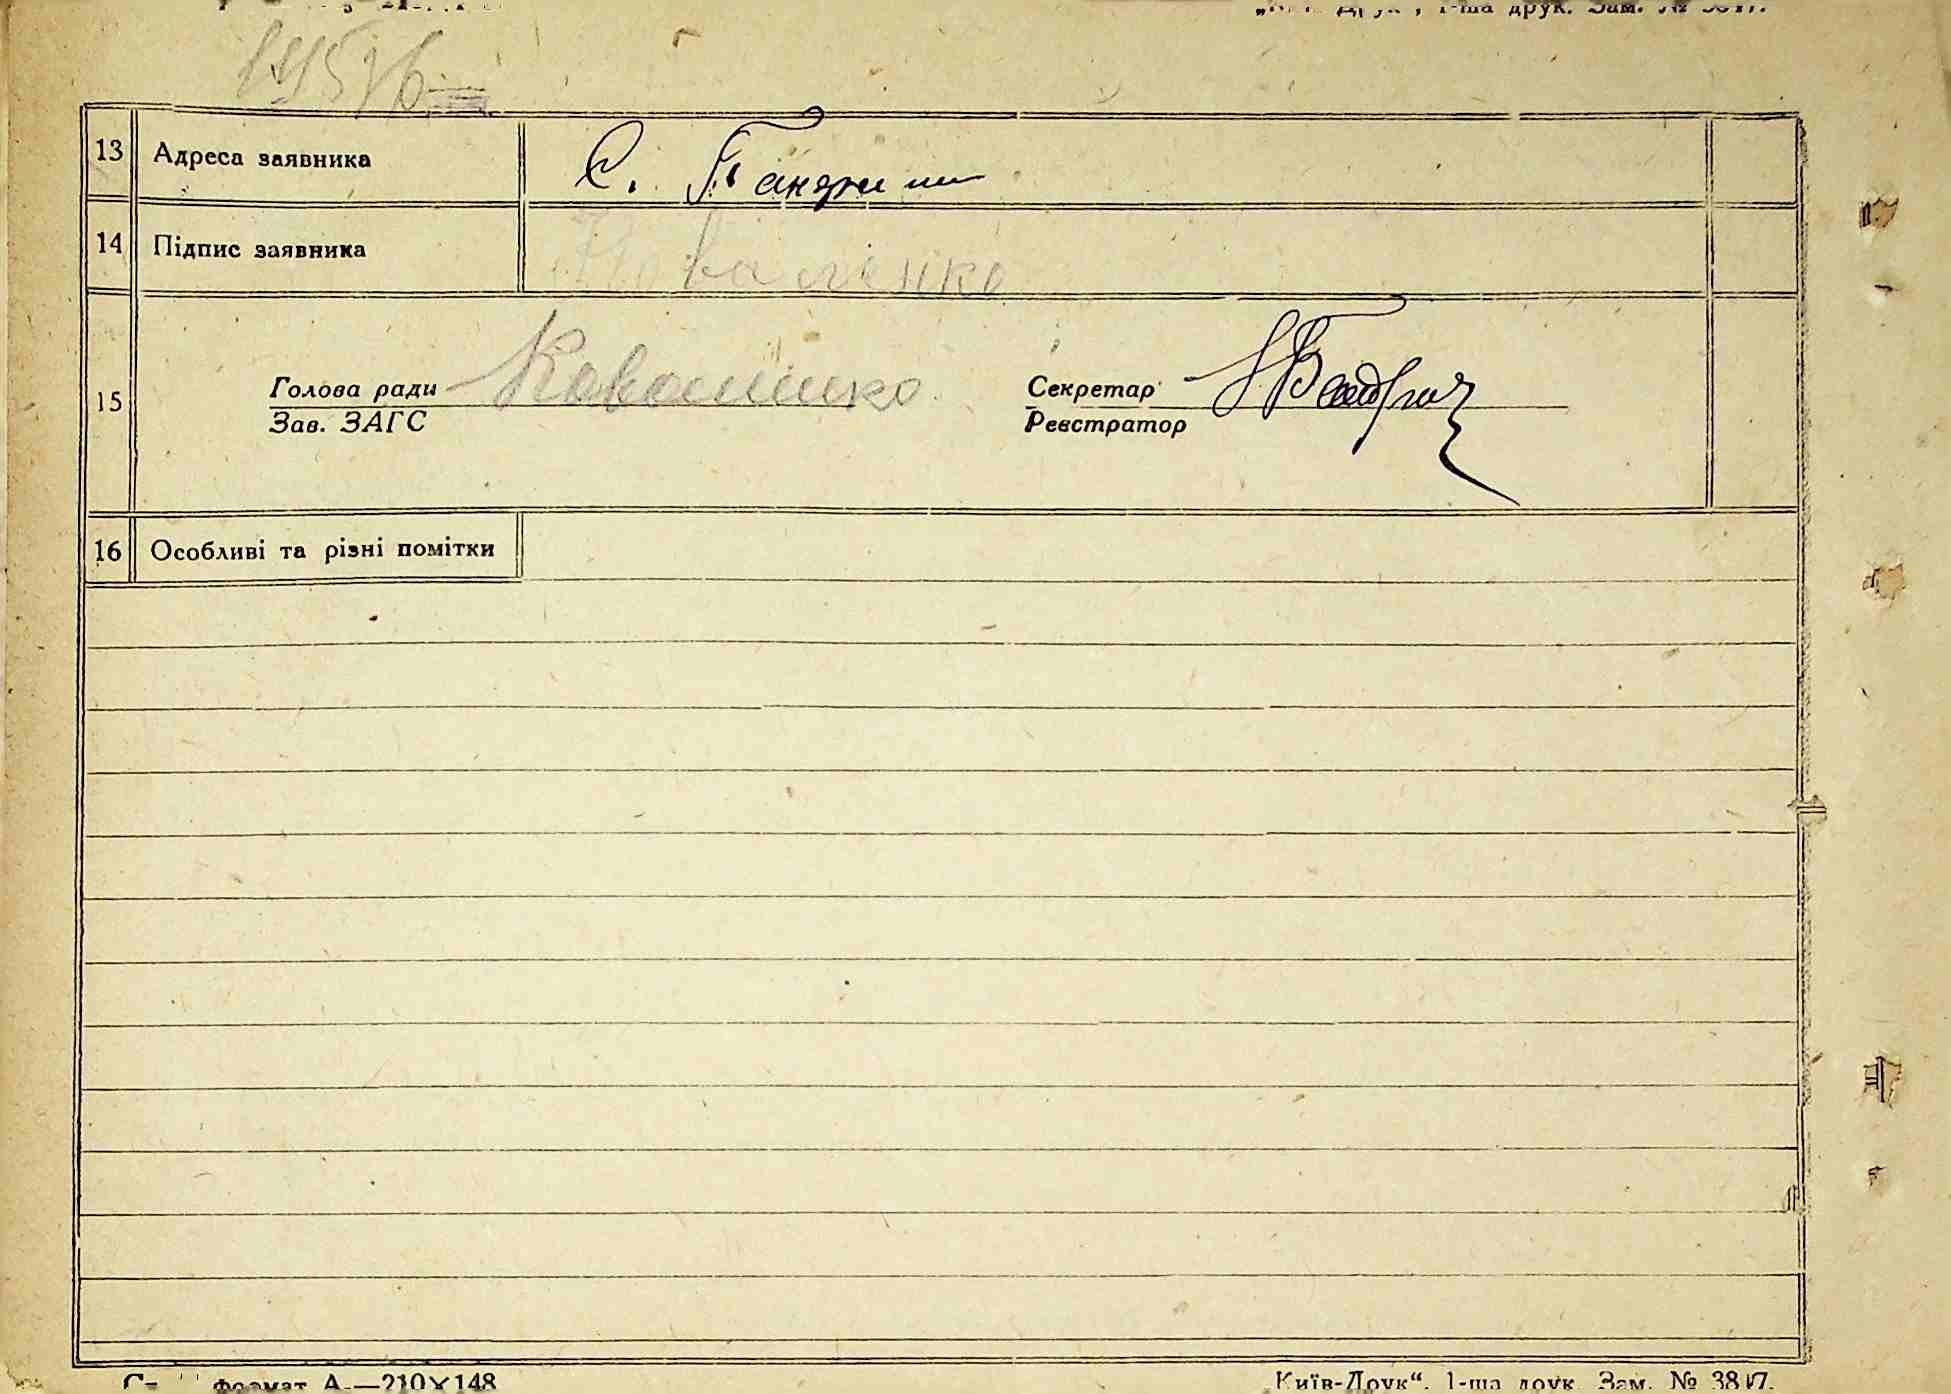 1-ша друк. Зам. №
13 Адреса заявника С.
14 Підпис заявника Коваленко
Голова ради Коваленко Секретар
15
Зав. ЗАГС Реєстратор
16 Особливі та різні помітки
формат А.—210×148 „Київ-Друк“. 1-ша друк. Зам. № 3817.